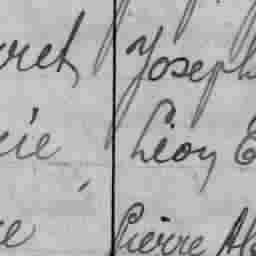 ret Joseph
cie Léon E
re Pierre Al